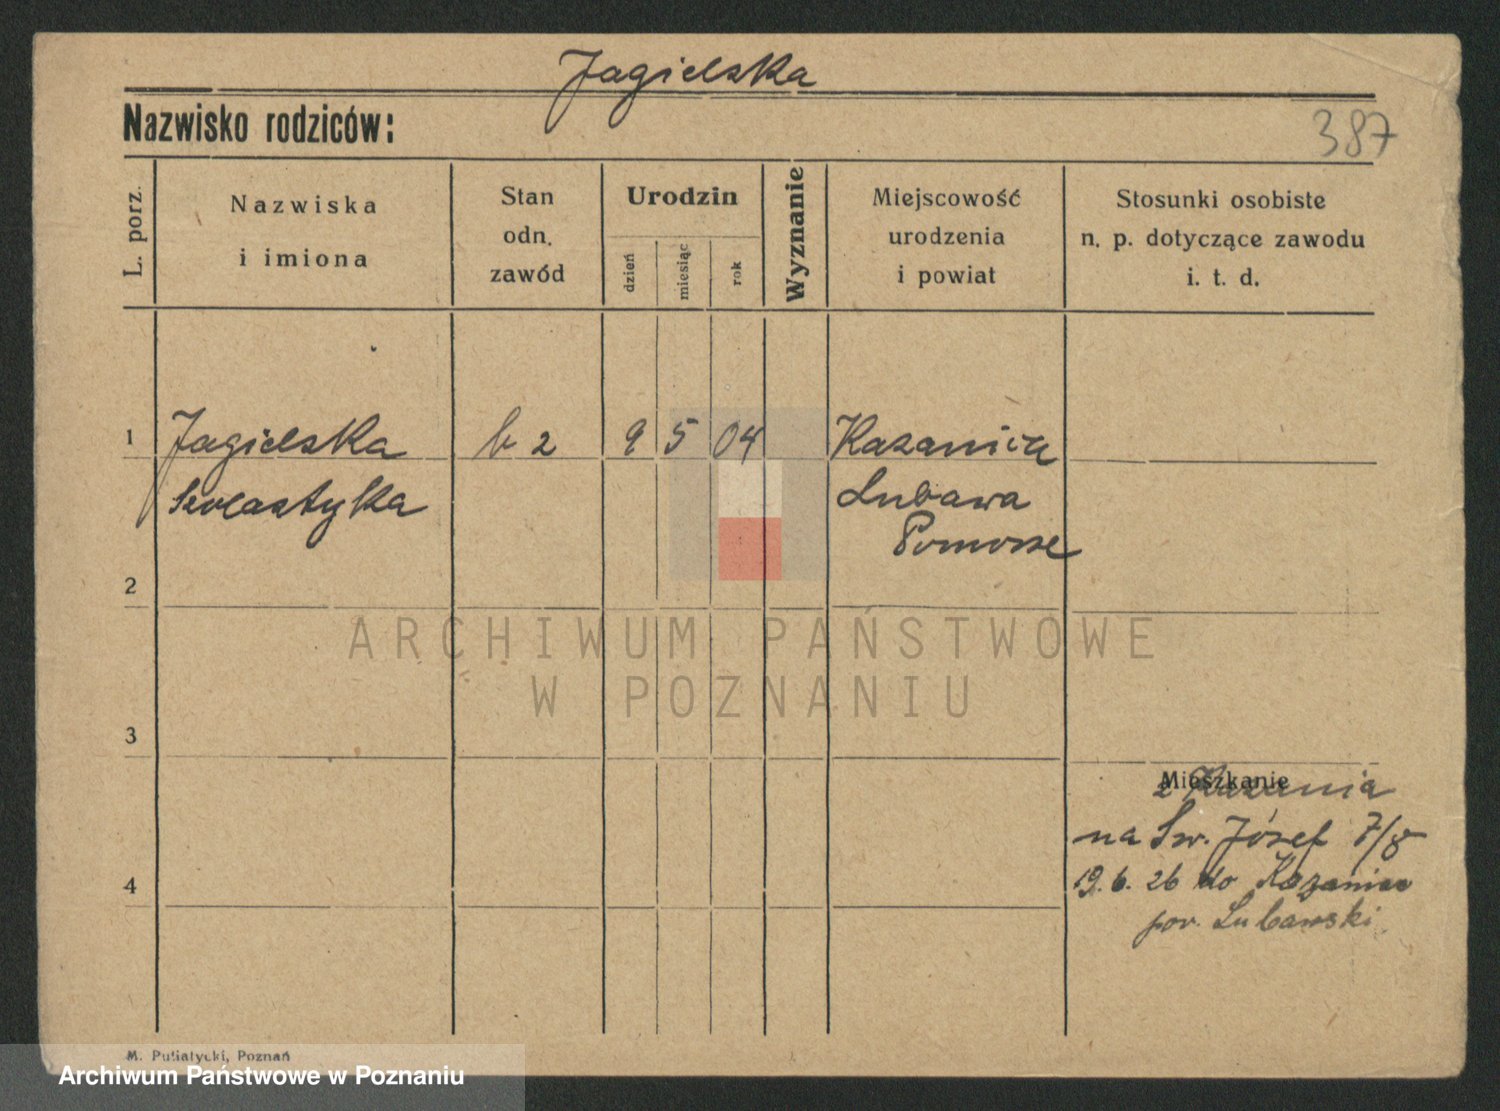 Jagielska
Nazwisko rodziców:
387
L. porz.
Nazwiska
i imiona
Stan
odn.
zawód
Urodzin
dzień
miesiąc
rok
Wyznanie
Miejscowość
urodzenia
i powiat
Stosunki osobiste
n. p. dotyczące zawodu
i. t. d.
1 Jagielska b 2 9 5 04 Kazanica
Scolastyka Lubawa
Pomorze
2
ARCHIWUM PAŃSTWOWE
W POZNANIU
3
Mieszkanie
z Kazania
na Św. Józef 7/8
4
19.6.26 do Kazanice
pow. Lubawski
M. Putiatycki, Poznań
Archiwum Państwowe w Poznaniu